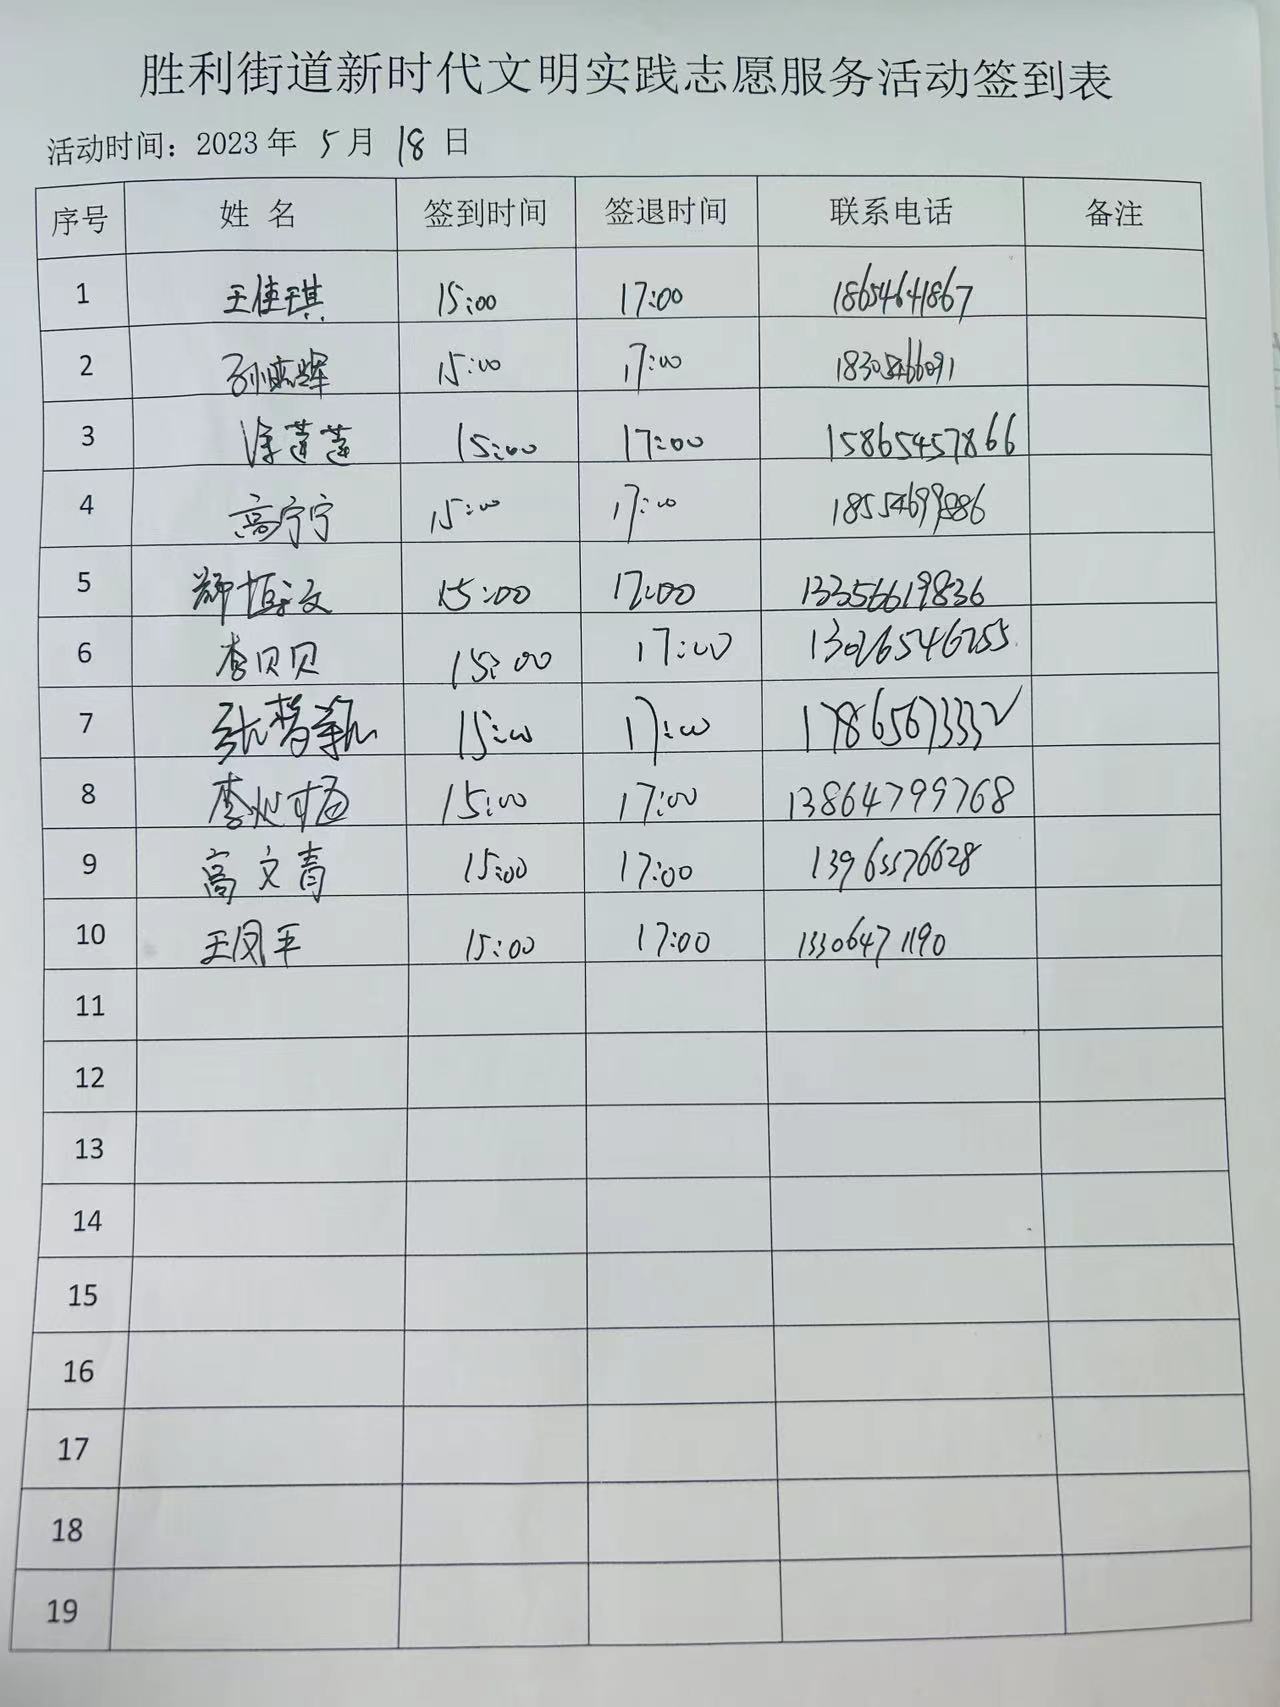 胜利街道新时代文明实践志愿服务活动签到表
活动时间：2023年 5月 18日
序号 姓名 签到时间 签退时间 联系电话 备注
1 王佳琪 15:00 17:00 18654641867
2 15:00 17:00 18305466091
3 15:00 17:00 15865457866
4 高宁宁 15:00 17:00 18554699886
5 15:00 17:00 13356619836
6 李贝贝 15:00 17:00
7 15:00 17:00
8 15:00 17:00 13864799768
9 高文青 15:00 17:00 13963576628
10 王凤平 15:00 17:00 13306471190
11
12
13
14
15
16
17
18
19